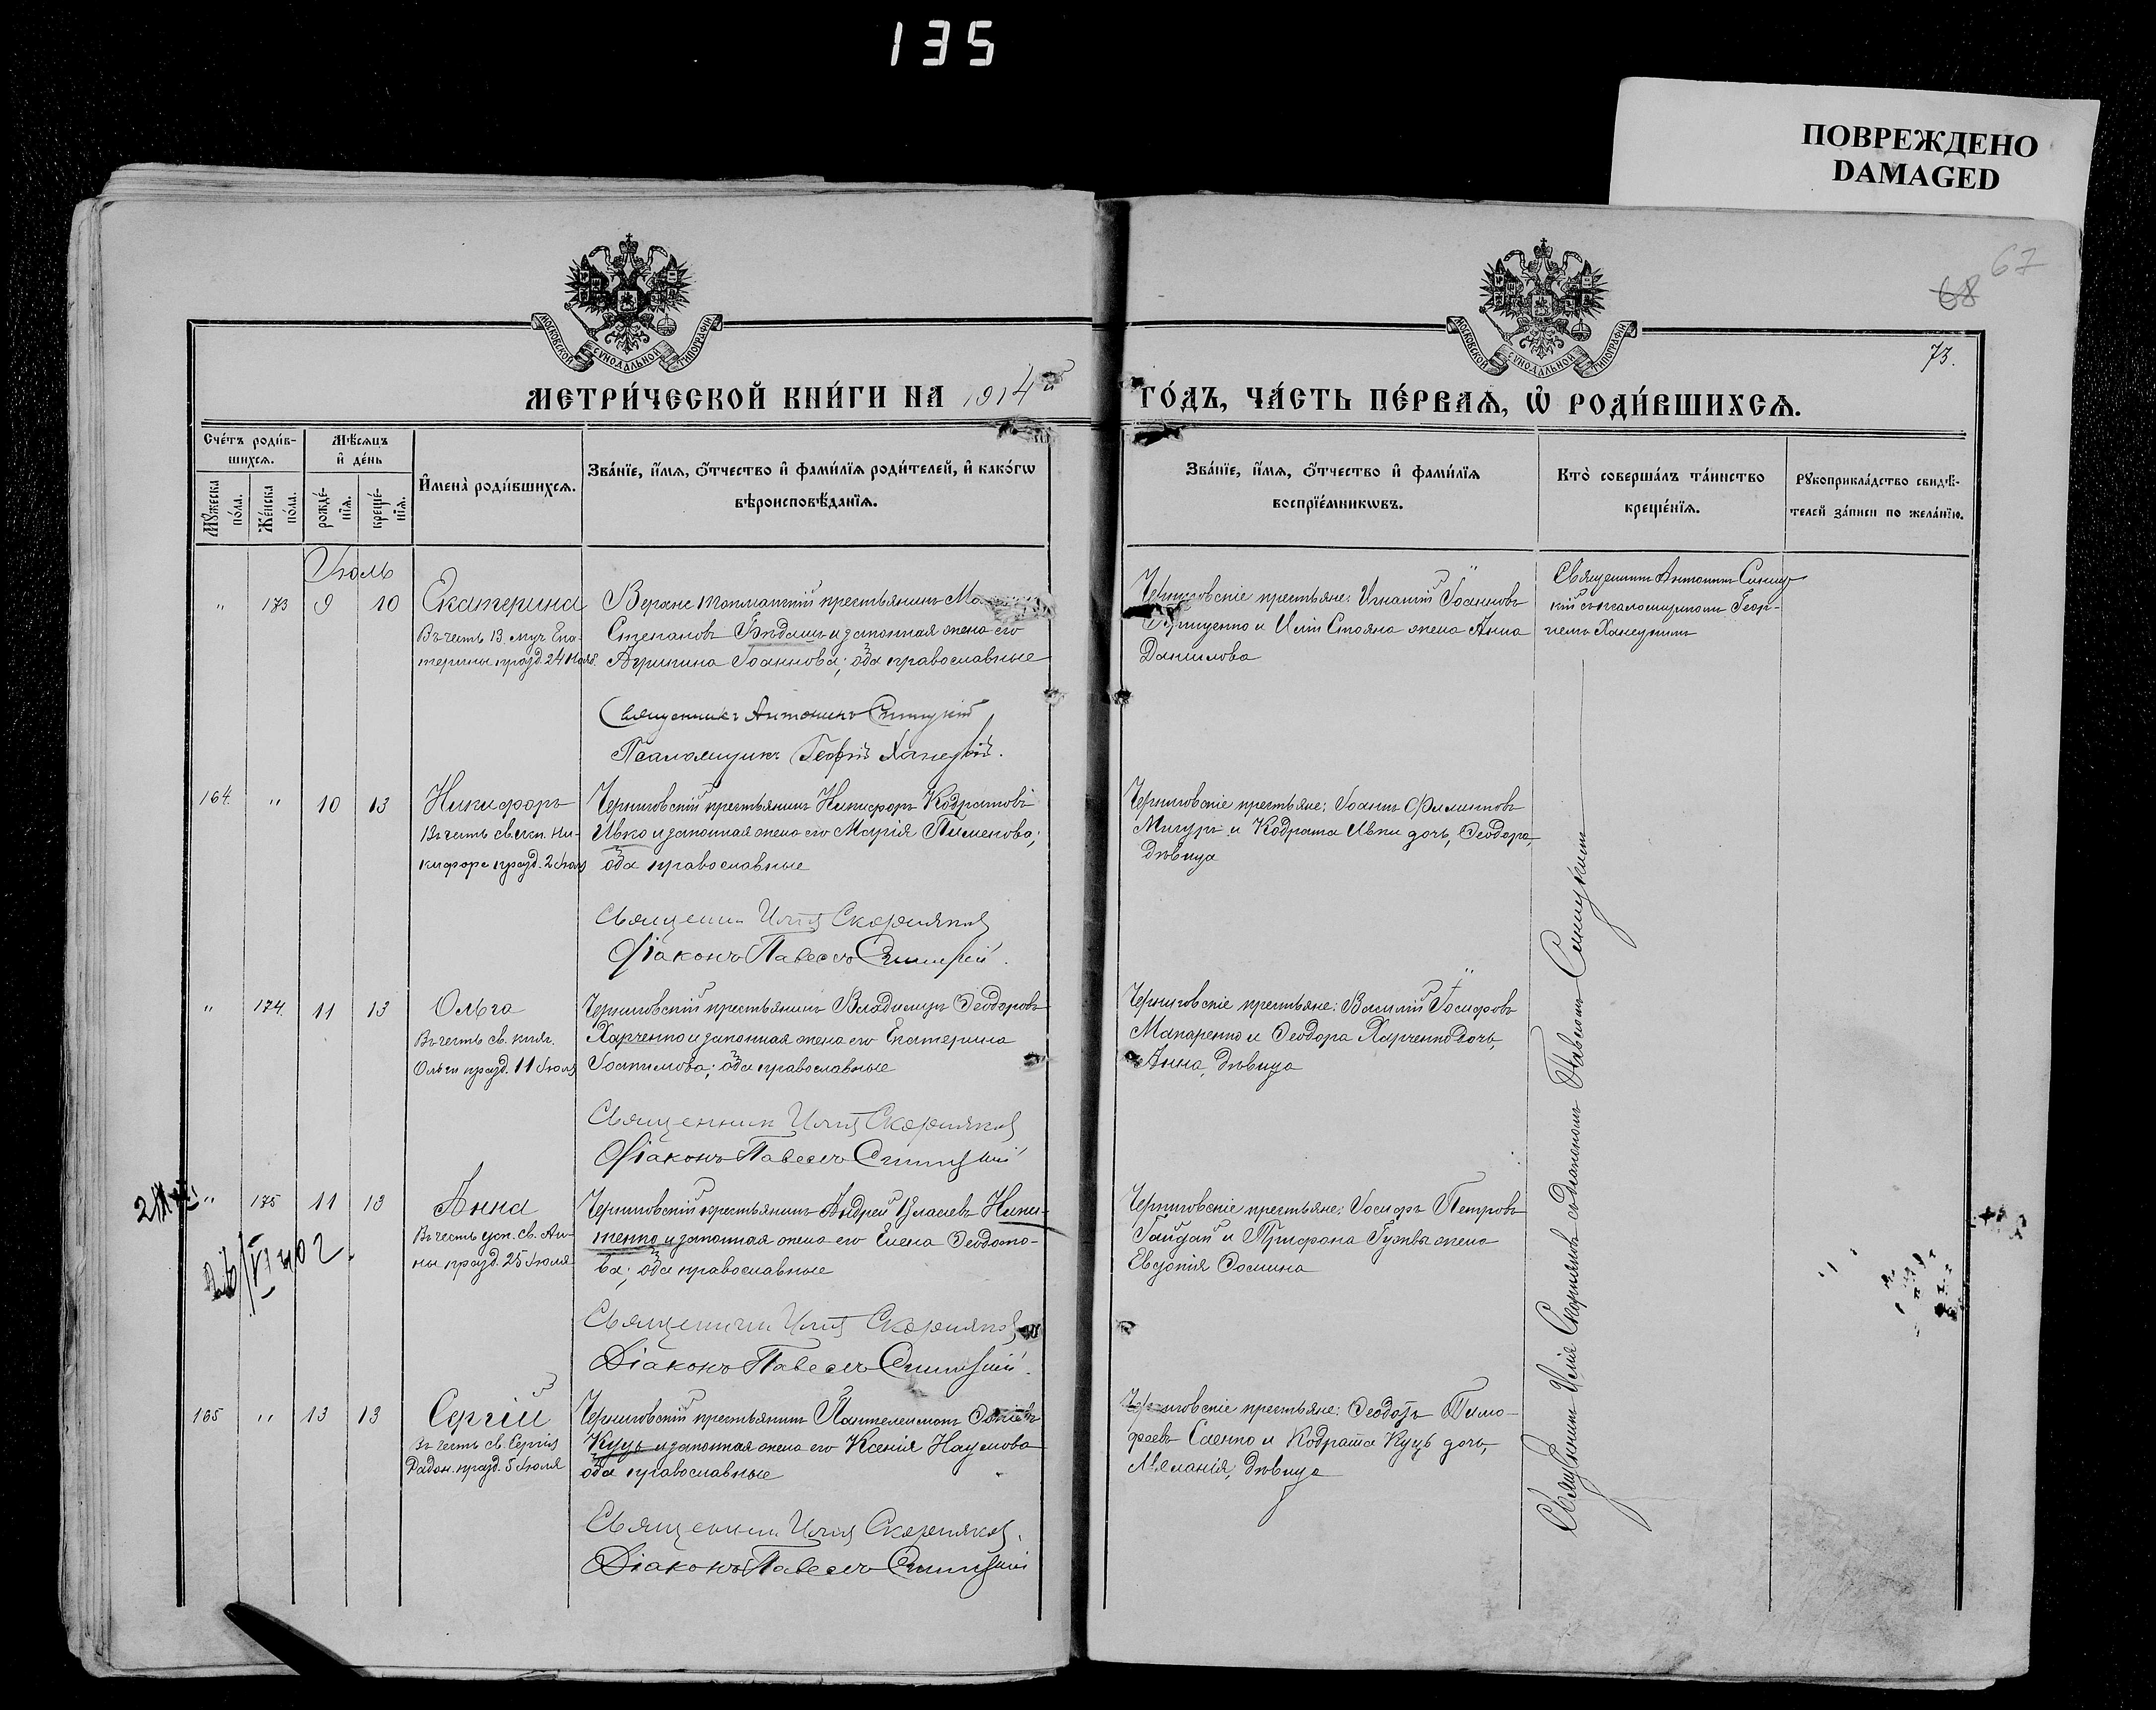 135
ПОВРЕЖДЕНО
DAMAGED
67
68
73.
МОСКОВСКОЙ СѴНОДАЛЬНОЙ ТИПОГРАФІИ
МОСКОВСКОЙ СѴНОДАЛЬНОЙ ТИПОГРАФІИ
МЕТРИ́ЧЕСКОЙ КНИ́ГИ НА 1914й ГО́ДЪ, ЧА́СТЬ ПЕ́РВАѦ, Ѡ҆ РОДИ́ВШИХСѦ.
Сче́тъ роди́в-
шихсѧ.
Мѣ́сѧцъ
и҆ де́нь
Мꙋ́жеска по́ла.
Же́нска по́ла.
рожде́-
нїѧ.
креще́-
нїѧ.
И҆мена̀ роди́вшихсѧ.
Зва́нїе, и҆́мѧ, ѻ҆́тчество и҆ фами́лїѧ роди́телей, и҆ како́гѡ
вѣроисповѣ́данїѧ.
Зва́нїе, и҆́мѧ, ѻ҆́тчество и҆ фами́лїѧ
воспрїе́мникѡвъ.
Кто̀ соверша́лъ та́инство
креще́нїѧ.
Рꙋкоприкла́дство свидѣ́-
телей за́писи по жела́нїю.
Іюль
" 173 9 10 Екатерина
Въ честь В. муч. Ека-
терины празд. 24 Нояб.
крестьянинъ
Степановъ и законная жена его
Агрипина Іоаннова; оба православные
Священникъ Антонинъ Синицкій
Псаломщикъ Георгій Ханецкій.
Черниговскіе крестьяне: Игнатій Іоанновъ
и Иліи Стояна жена Анна
Данилова
Священник Антонин Синиц-
кій съ псаломщиком Геор-
гіем Ханецким
164. " 10 13 Никифоръ
Въ честь св. исп. Ни-
кифора празд. 2 Іюня
Черниговскій крестьянинъ Никифоръ Кодратовъ
Ивко и законная жена его Марія Пименова;
оба православные
Священник Илія Скорняков
Діаконъ Павелъ Синицкій.
Черниговскіе крестьяне: Іоаннъ Филиповъ
Мигуръ и Кодрата Ивки дочь, Ѳеодора,
дѣвица
" 174. 11 13 Ольга
Въ честь св. княг.
Ольги празд. 11 Іюля
Черниговскій крестьянинъ Владимиръ Ѳеодоровъ
Харченко и законная жена его Екатерина
Іоакимова; оба православные
Священник Илія Скорняков
Діаконъ Павелъ Синицкій
Черниговскіе крестьяне: Василій Іосифовъ
Макаренко и Ѳеодора Харченко дочь,
Анна, дѣвица
" 175 11 13 Анна
Въ честь усп. св. Ан-
ны празд. 25 Іюля
Черниговскій крестьянинъ Андрей Власіевъ Ники-
тенко и законная жена его Елена Ѳеодото-
ва; оба православные
Священник Илія Скорняков
Діаконъ Павелъ Синицкій.
Черниговскіе крестьяне: Іосифъ Петровъ
Гайдай и Трифона Гужвы жена
Евдокія Ѳомина
165 " 13 13 Сергій
Въ честь св. Сергія
Радон. празд. 5 Іюля
Черниговскій крестьянинъ Пантелеимонъ
Куць и законная жена его Ксенія Наумова
оба православные
Священник Илія Скорняков.
Діаконъ Павелъ Синицкій
Черниговскіе крестьяне: Ѳеодотъ Тимо-
феевъ Саенко и Кодрата Куць дочь,
Меланія, дѣвица
Священник Илія Скорняков съ діаконом Павлом Синицким